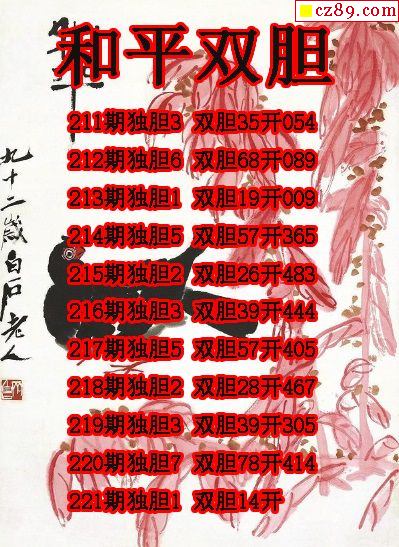 cz89.com
和平双胆
211期独胆3 双胆35开054
212期独胆6 双胆68开089
213期独胆1 双胆19开009
214期独胆5 双胆57开365
215期独胆2 双胆26开483
216期独胆3 双胆39开444
217期独胆5 双胆57开405
218期独胆2 双胆28开467
219期独胆3 双胆39开305
220期独胆7 双胆78开414
221期独胆1 双胆14开
九十二岁白石老人